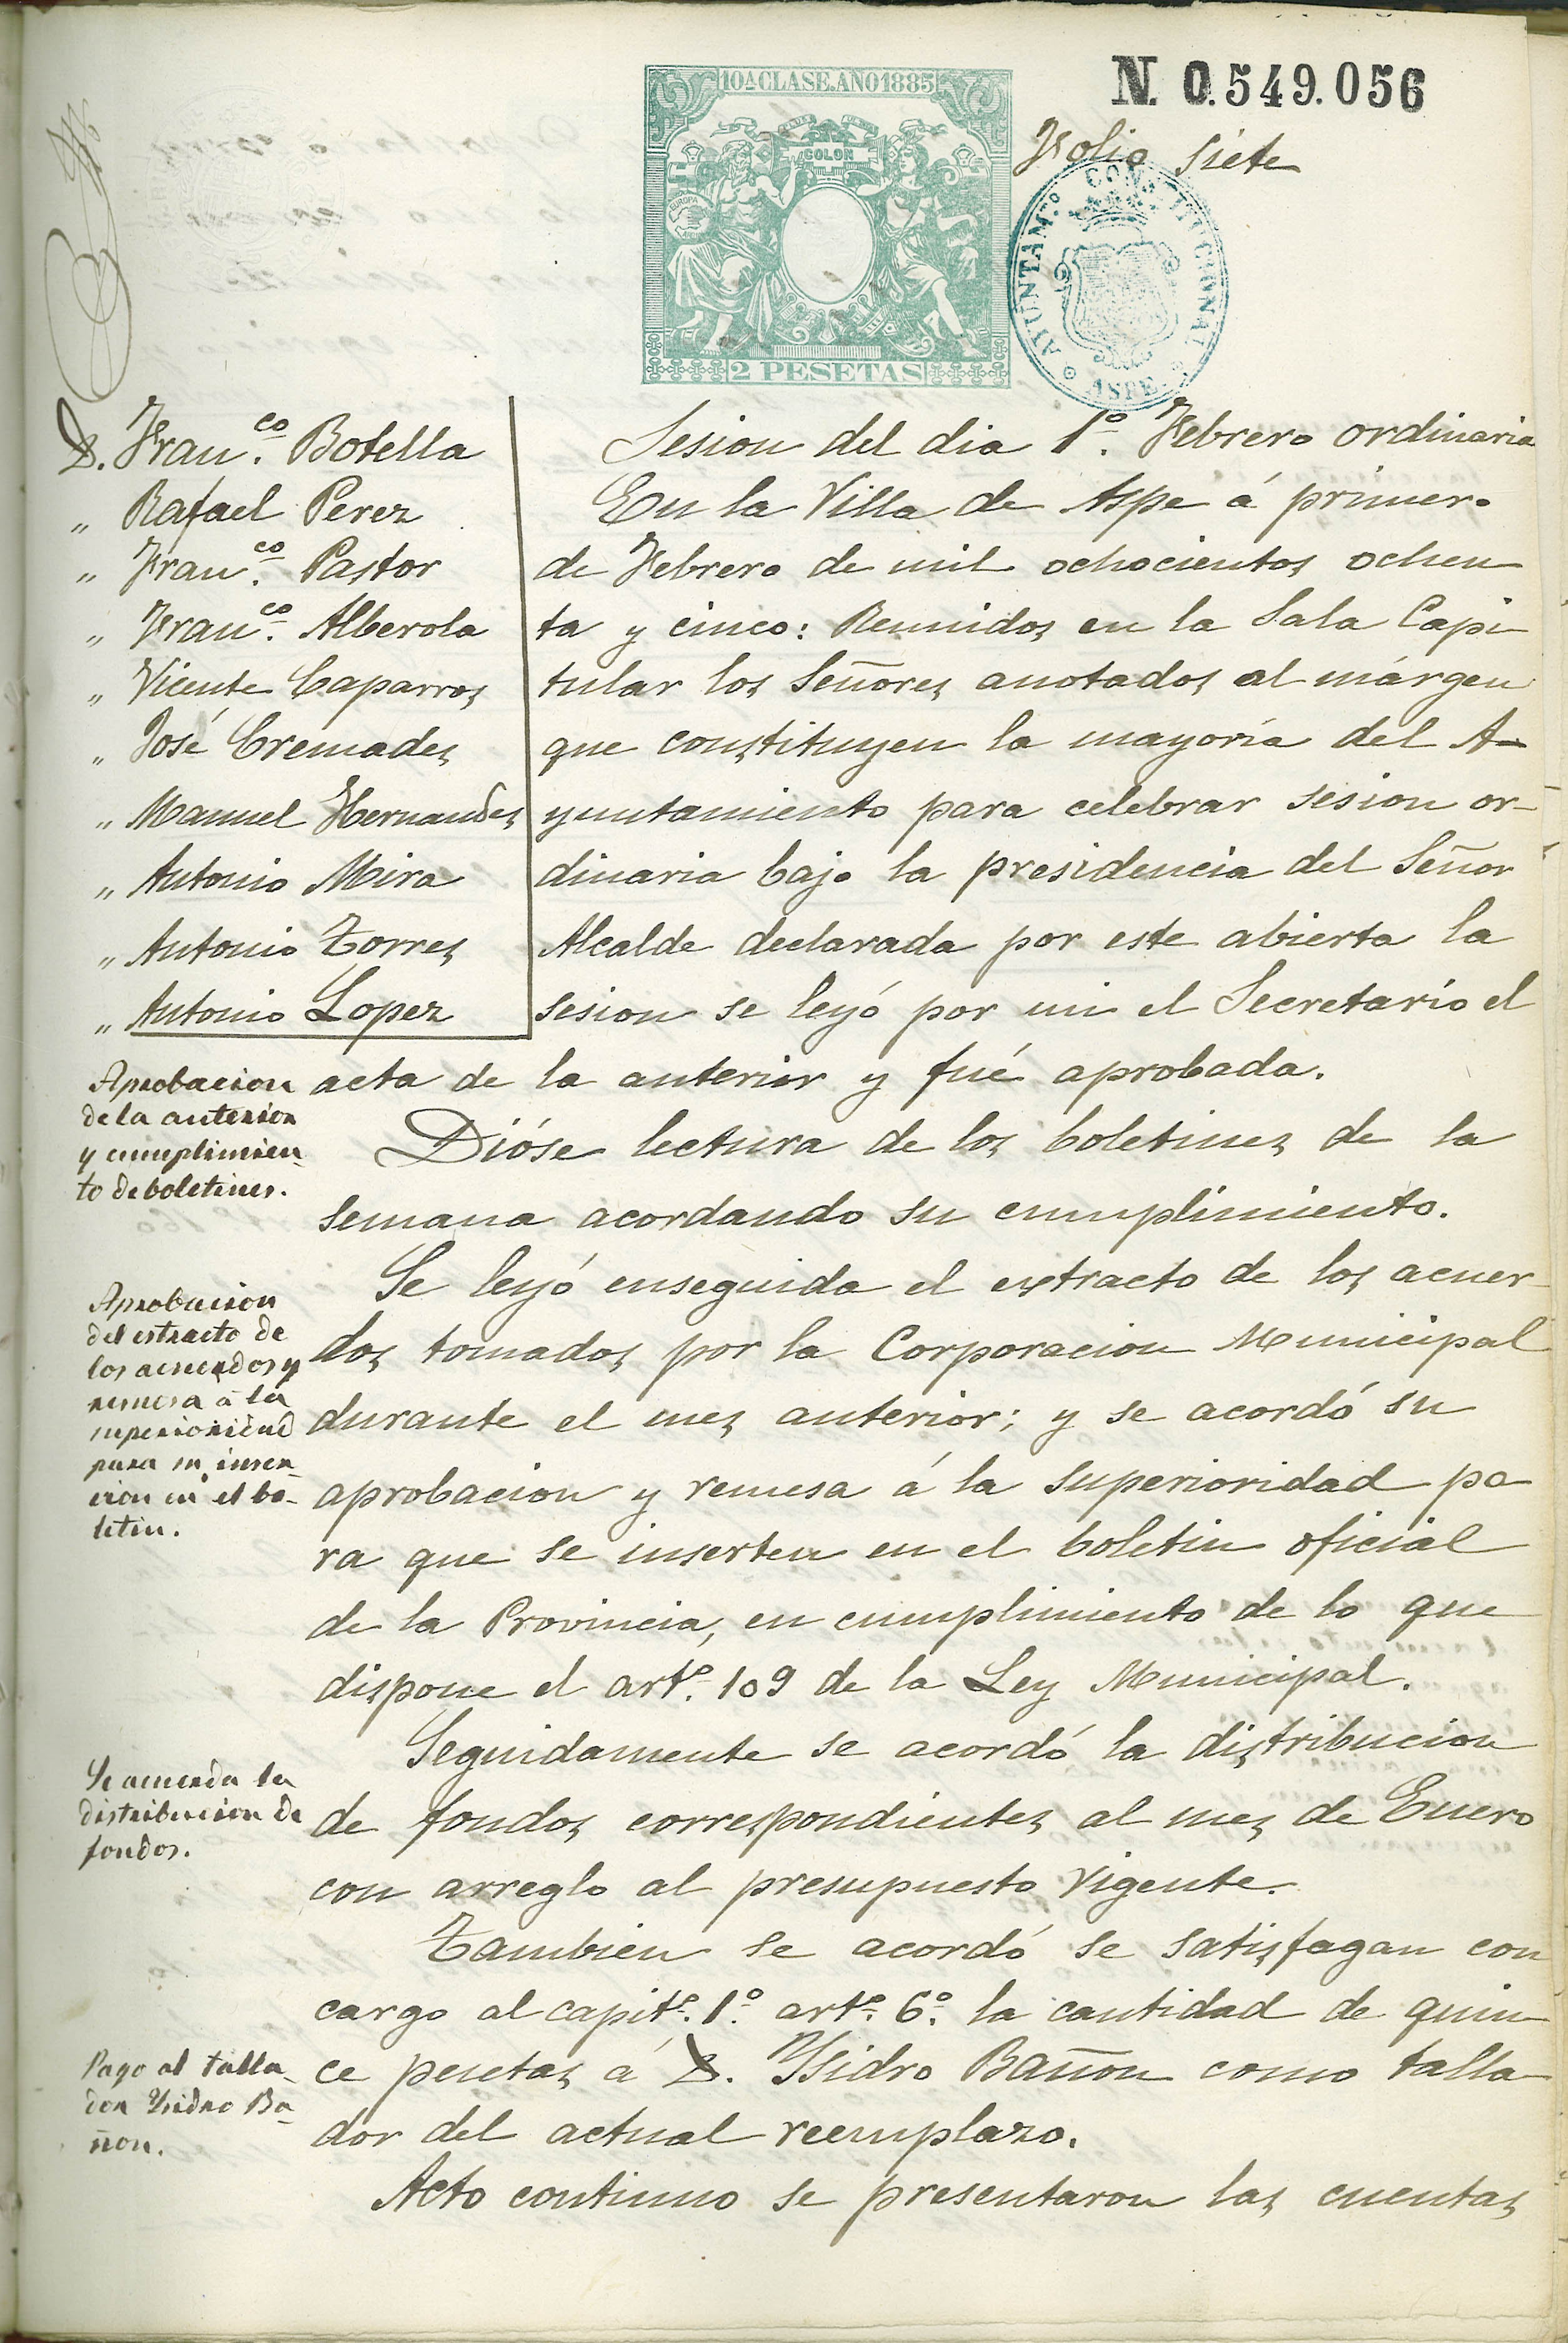 N. 0.549.056
10A CLASE. AÑO 1885
COLON
EUROPA
2 PESETAS
Folio siete
AYUNTAM.TO CONSTITUCIONAL
ASPE
D. Fran.co Botella
„ Rafael Perez
„ Fran.co Pastor
„ Fran.co Alberola
„ Vicente Caparros
„ José Cremades
„ Manuel Hernandes
„ Antonio Mira
„ Antonio Torres
„ Antonio Lopez
Sesion del dia 1º. Febrero ordinaria
En la Villa de Aspe á primero
de Febrero de mil ochocientos ochen
ta y cinco: Reunidos en la Sala Capi
tular los Señores anotados al márgen
que constituyen la mayoría del A-
yuntamiento para celebrar sesion or-
dinaria bajo la presidencia del Señor
Alcalde declarada por este abierta la
sesion se leyó por mi el Secretario el
acta de la anterior y fué aprobada.
Aprobacion
de la anterior
y cumplimien-
to de boletines.
Dióse lectura de los boletines de la
semana acordando su cumplimiento.
Aprobacion
del estracto de
los acuerdos y
remesa á la
superioridad
para su inser-
cion en el bo-
letin.
Se leyó enseguida el extracto de los acuer-
dos tomados por la Corporacion Municipal
durante el mes anterior; y se acordó su
aprobacion y remesa á la superioridad pa
ra que se inserten en el boletin oficial
de la Provincia, en cumplimiento de lo que
dispone el artº. 109 de la Ley Municipal.
Se acuerda la
distribucion de
fondos.
Seguidamente se acordó la distribucion
de fondos correspondientes al mes de Enero
con arreglo al presupuesto vigente.
Tambien se acordó se satisfagan con
cargo al capitº. 1º. artº. 6º. la cantidad de quin
ce pesetas á D. Ysidro Bañon como talla
dor del actual reemplazo.
Pago al talla-
dor Ysidro Ba-
ñon.
Acto continuo se presentaron las cuentas